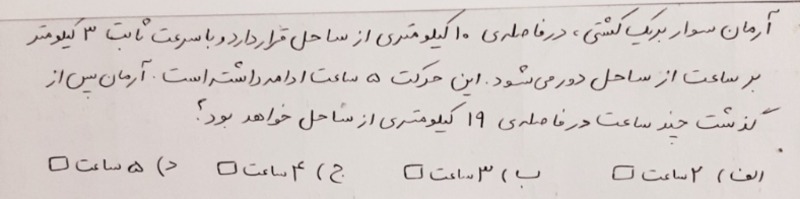 آرمان سوار بر یک کشتی، در فاصله‌ی ۱۰ کیلومتری از ساحل قرار دارد و با سرعت ثابت ۳ کیلومتر
بر ساعت از ساحل دور می‌شود. این حرکت ۵ ساعت ادامه داشته است. آرمان پس از
گذشت چند ساعت در فاصله‌ی ۱۹ کیلومتری از ساحل خواهد بود؟
الف) ۲ ساعت □ ب) ۳ ساعت □ ج) ۴ ساعت □ د) ۵ ساعت □